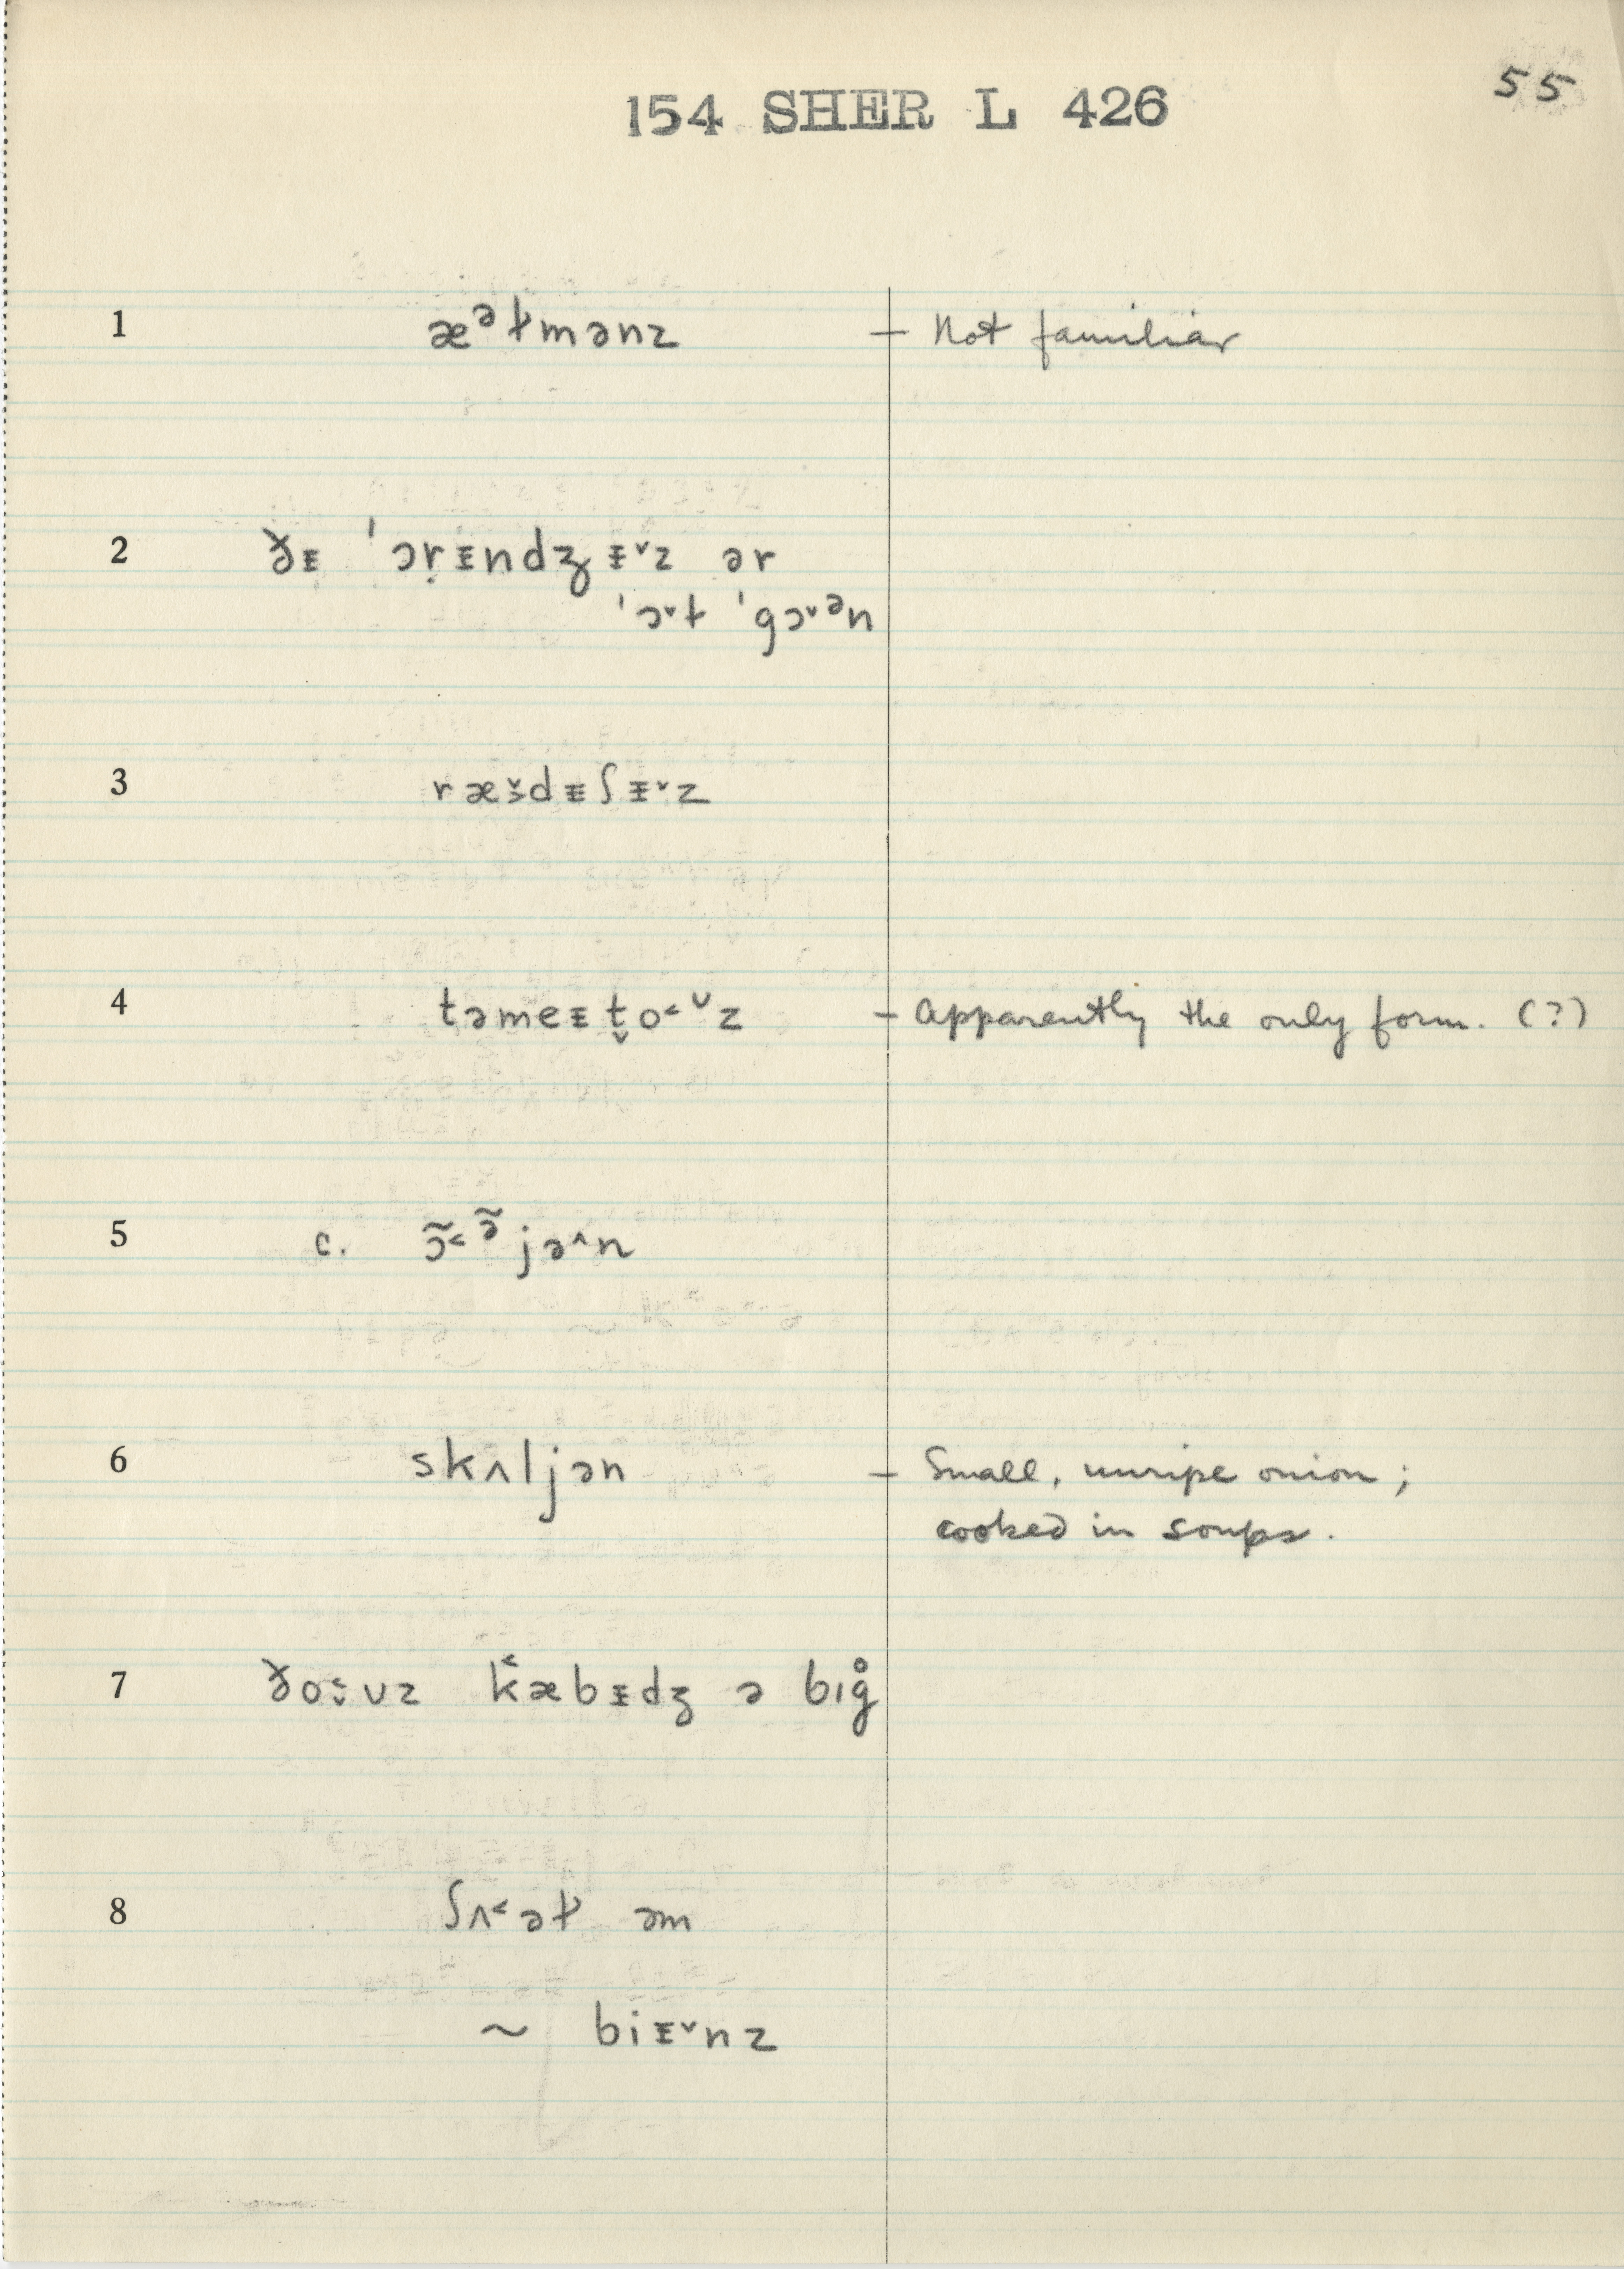 55
154 SHER L 426
1 æᵊɫmənz — Not familiar
2 ðᵻ ˈɔṛᵻndʒᵻ˅z ər
ˈɔ˅t ˈgɔ˅ᵊn
3 ræš̬dᵻʃᵻ˅z
4 təmeᵻt̬o˂ᶷz — Apparently the only form. (?)
5 c. ɔ̃˂ᵊ̃jə˄n
6 skʌljən — Small, unripe onion;
cooked in soups.
7 ðo˂̬ʊz k˂æbᵻdʒ ə bɪg̊
8 ʃʌ˂əɫ əm
~ biᵻ˅nz